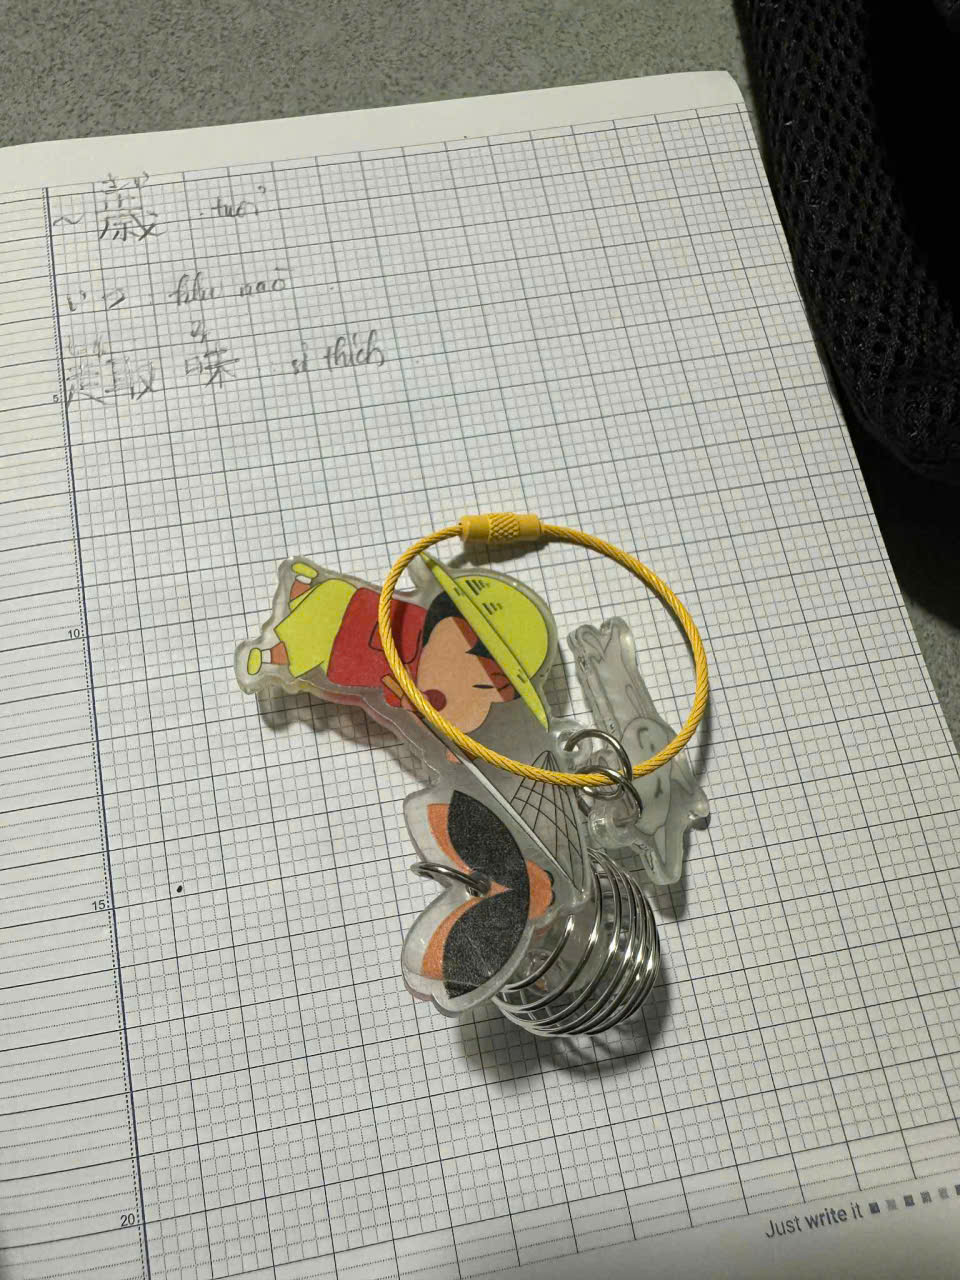 ~ 歳 . tuổi
いつ khi nào
趣味 sở thích
5
10
15
20
Just write it